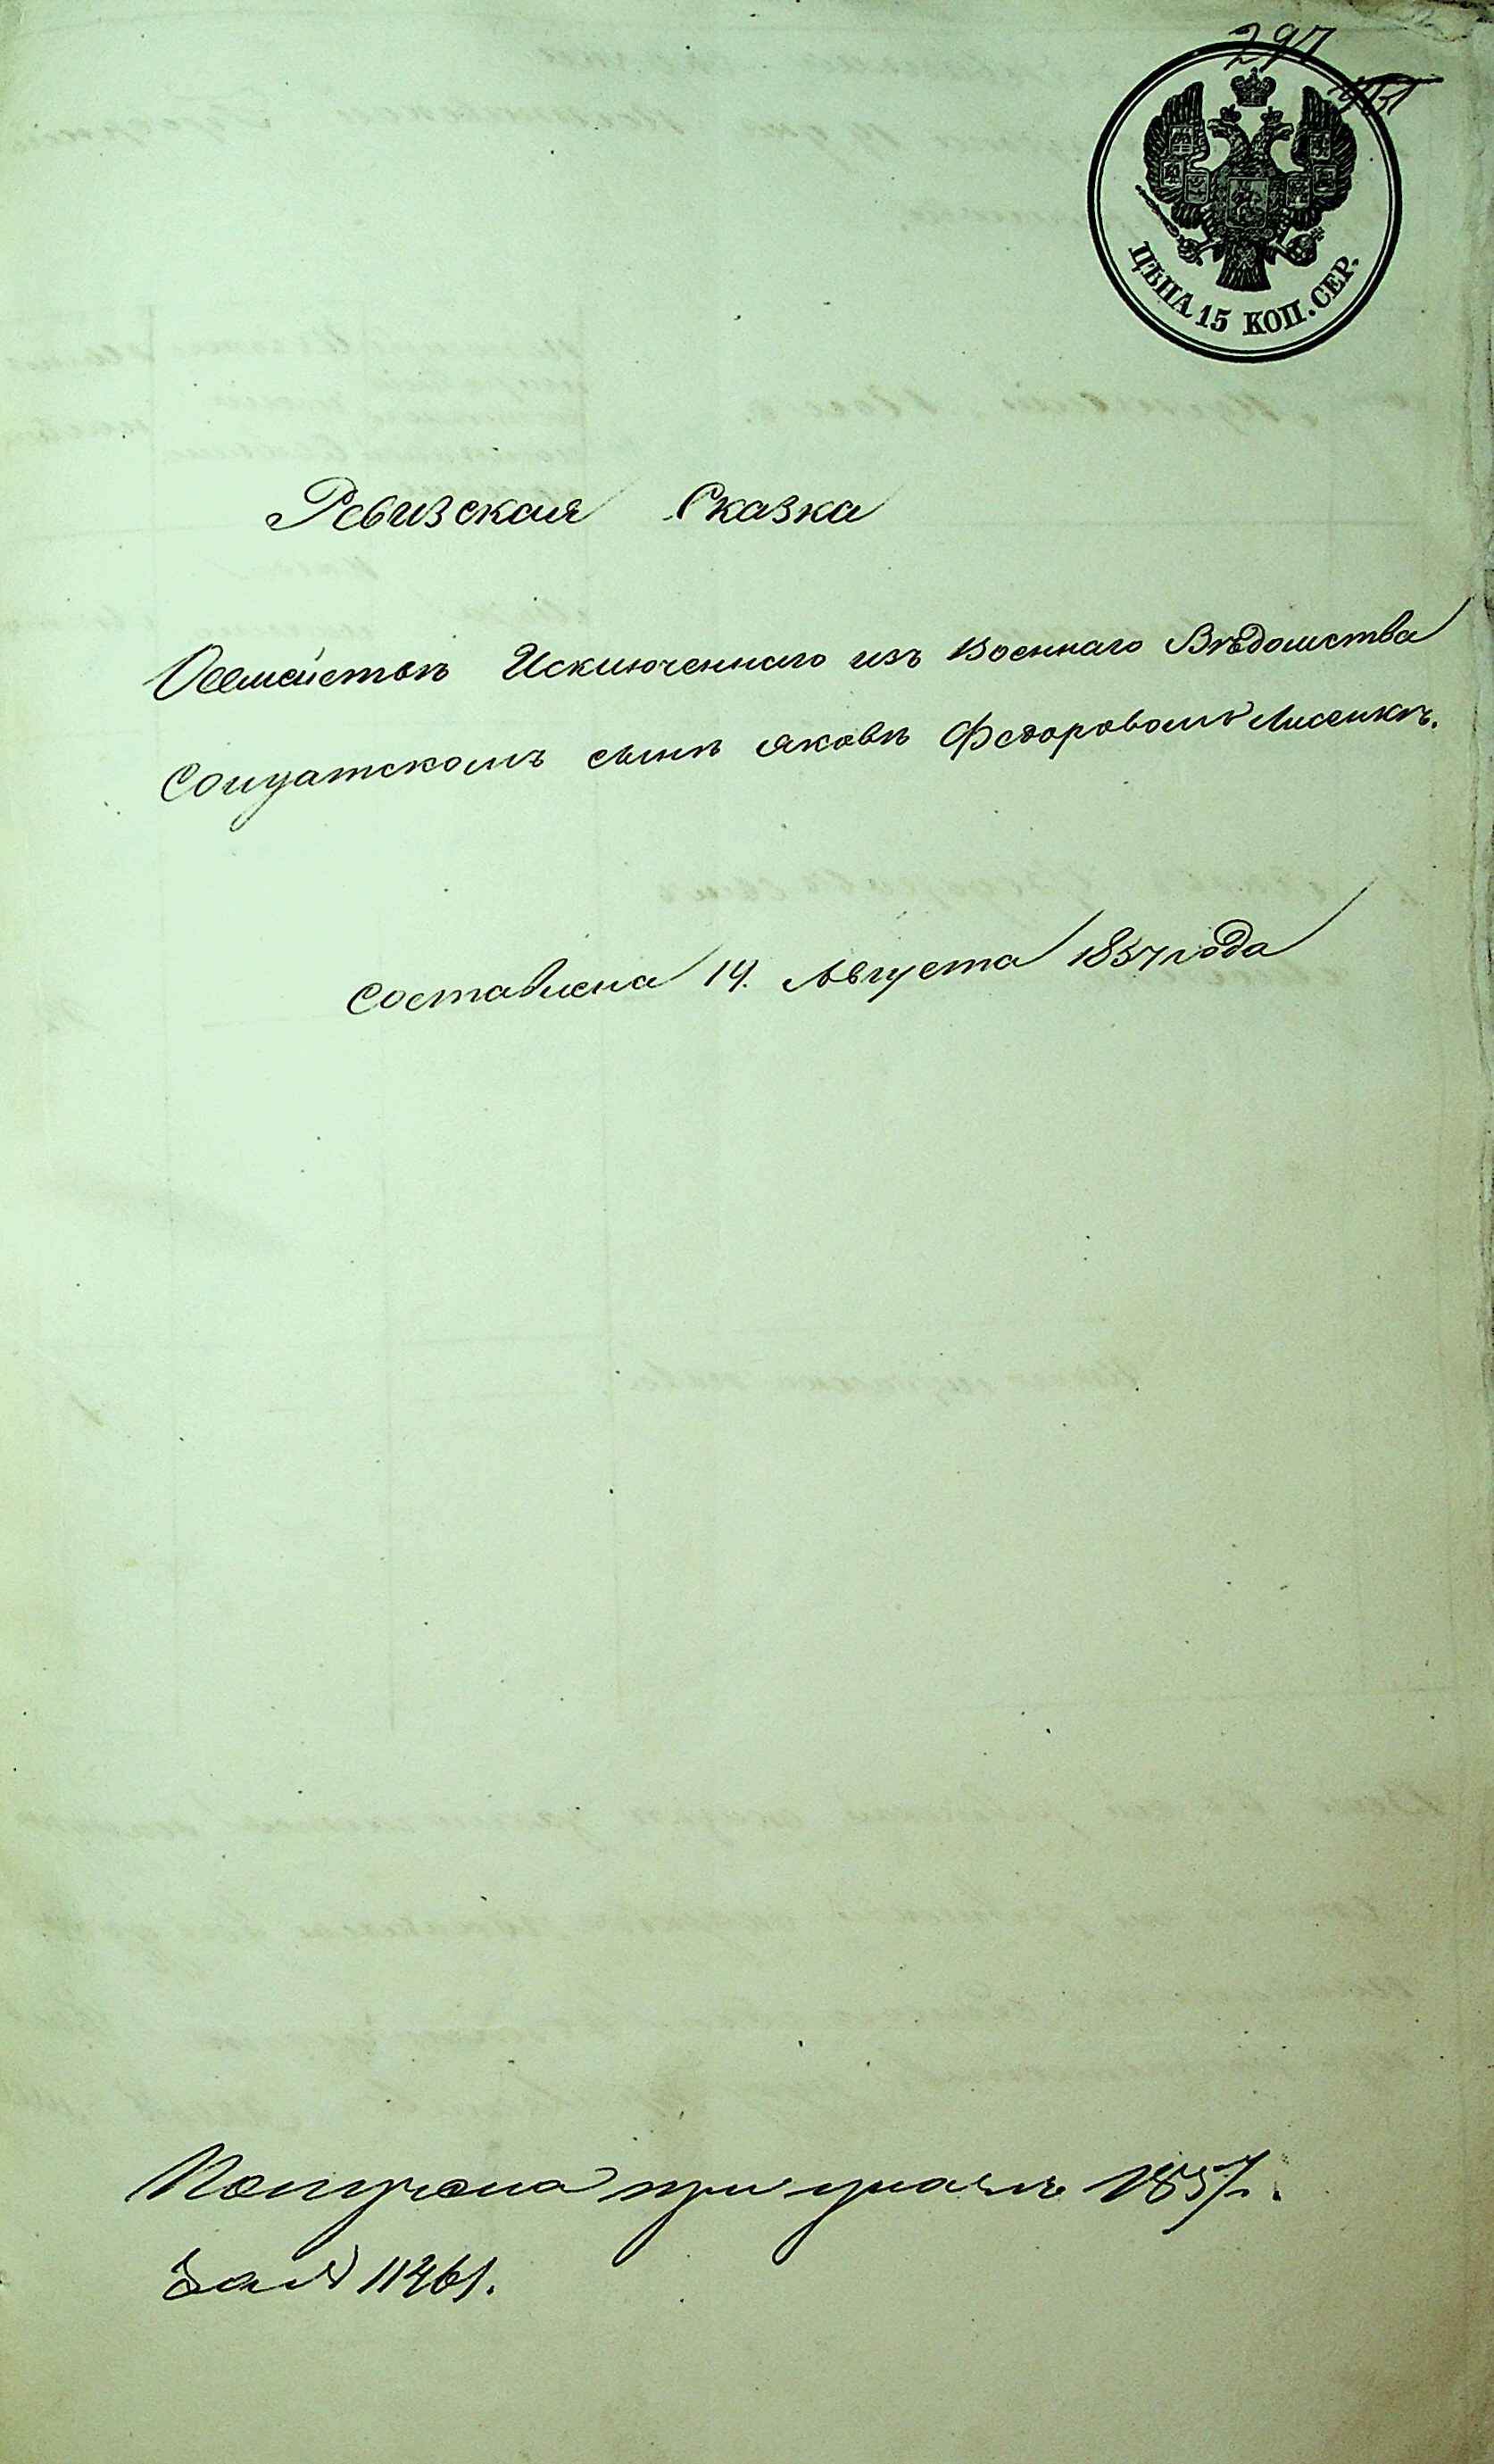 297
ЦѢНА 15 КОП. СЕР.
Ревизская Сказка
О семействѣ Исключеннаго изъ Военнаго Вѣдомства
Солдатскомъ сынѣ Яковѣ Федоровомъ Лисенкѣ.
Составлена 14. Августа 1857 года
Получена при указѣ 1857 г.
за № 11461.